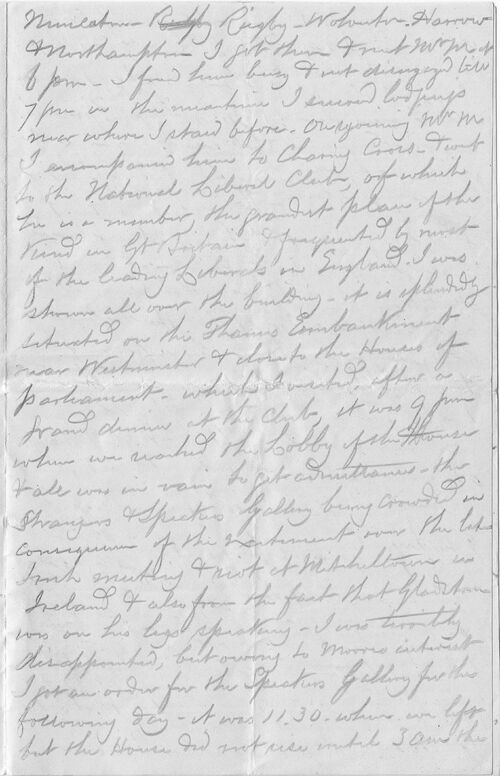 Nuneaton - Rugby - Wolverton - Harrow
& Northampton I got there & met Mr M at
6 pm - I found him busy & not disengaged till
7 pm in the meantime I secured lodgings
near where I staid before - On joining Mr M
I accompanied him to Charing Cross - & went
to the National Liberal Club, of which
he is a member, the grandest place of the
kind in Gt Britain & frequented by most
of the leading Liberals in England. I was
shown all over the building - it is splendidly
situated on the Thames Embankment
near Westminster & close to the Houses of
Parliament - which I visited, after a
grand dinner at the Club, it was 9 pm
when we reached the Lobby of the House
& all was in vain to get admittance - the
Strangers & Speakers Gallery being crowded in
consequence of the excitement over the late
Irish meeting & riot at Mitchelstown in
Ireland & also from the fact that Gladstone
was on his legs speaking - I was terribly
disappointed, but owing to Morris interest
I got an order for the Speakers Gallery for the
following day - it was 11.30 - when we left
but the House did not rise until 3 am the